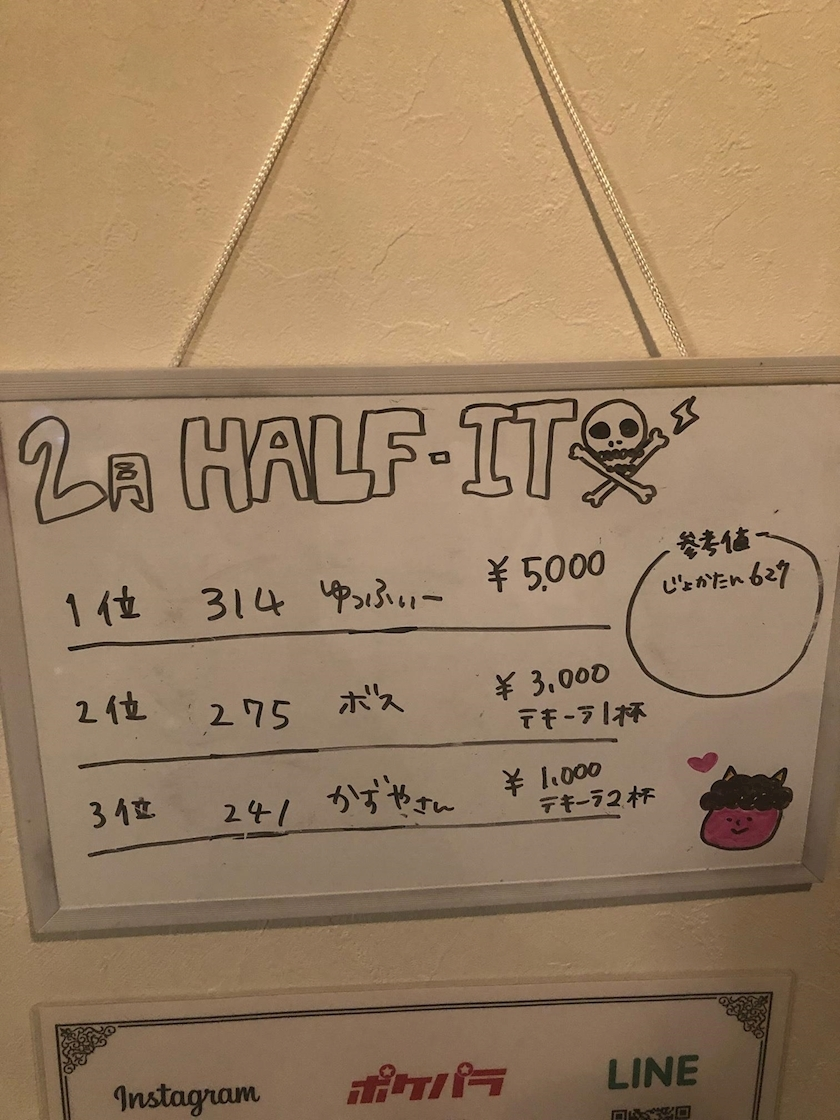 2月 HALF-IT
参考値
じょかたん627
1位 314 ゆっふぃー ¥5,000
2位 275 ボス ¥3,000
テキーラ1杯
3位 241 かずやさん ¥1,000
テキーラ2杯
Instagram ポケパラ LINE